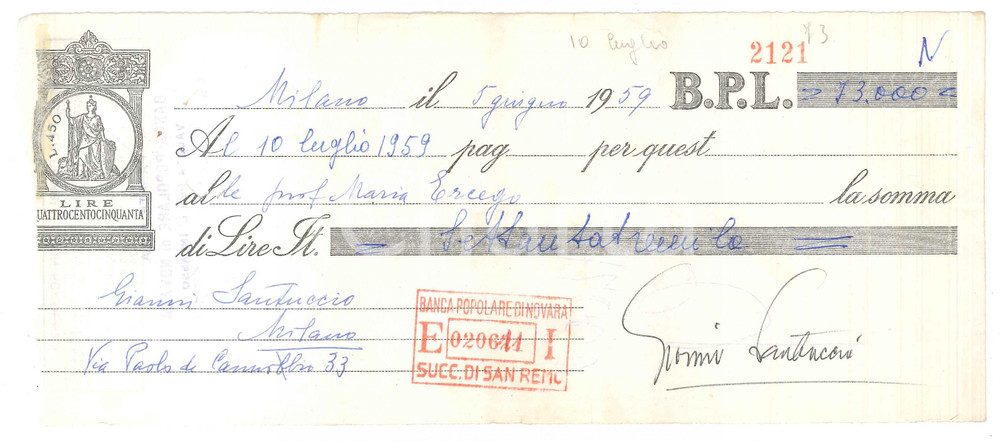 10 luglio 73
2121
N
Milano il 5 giugno 1959 B.P.L. = 73.000 =
Al 10 luglio 1959 pag per quest
al le prof Maria Ercego la somma
di Lire It. = Settantatremila =
L. 450
LIRE
QUATTROCENTOCINQUANTA
Gianni Santuccio
Milano
Via Paolo da Cannobbio 33
BANCA POPOLARE DI NOVARA
E 020611 I
SUCC. DI SAN REMO
Gianni Santuccio